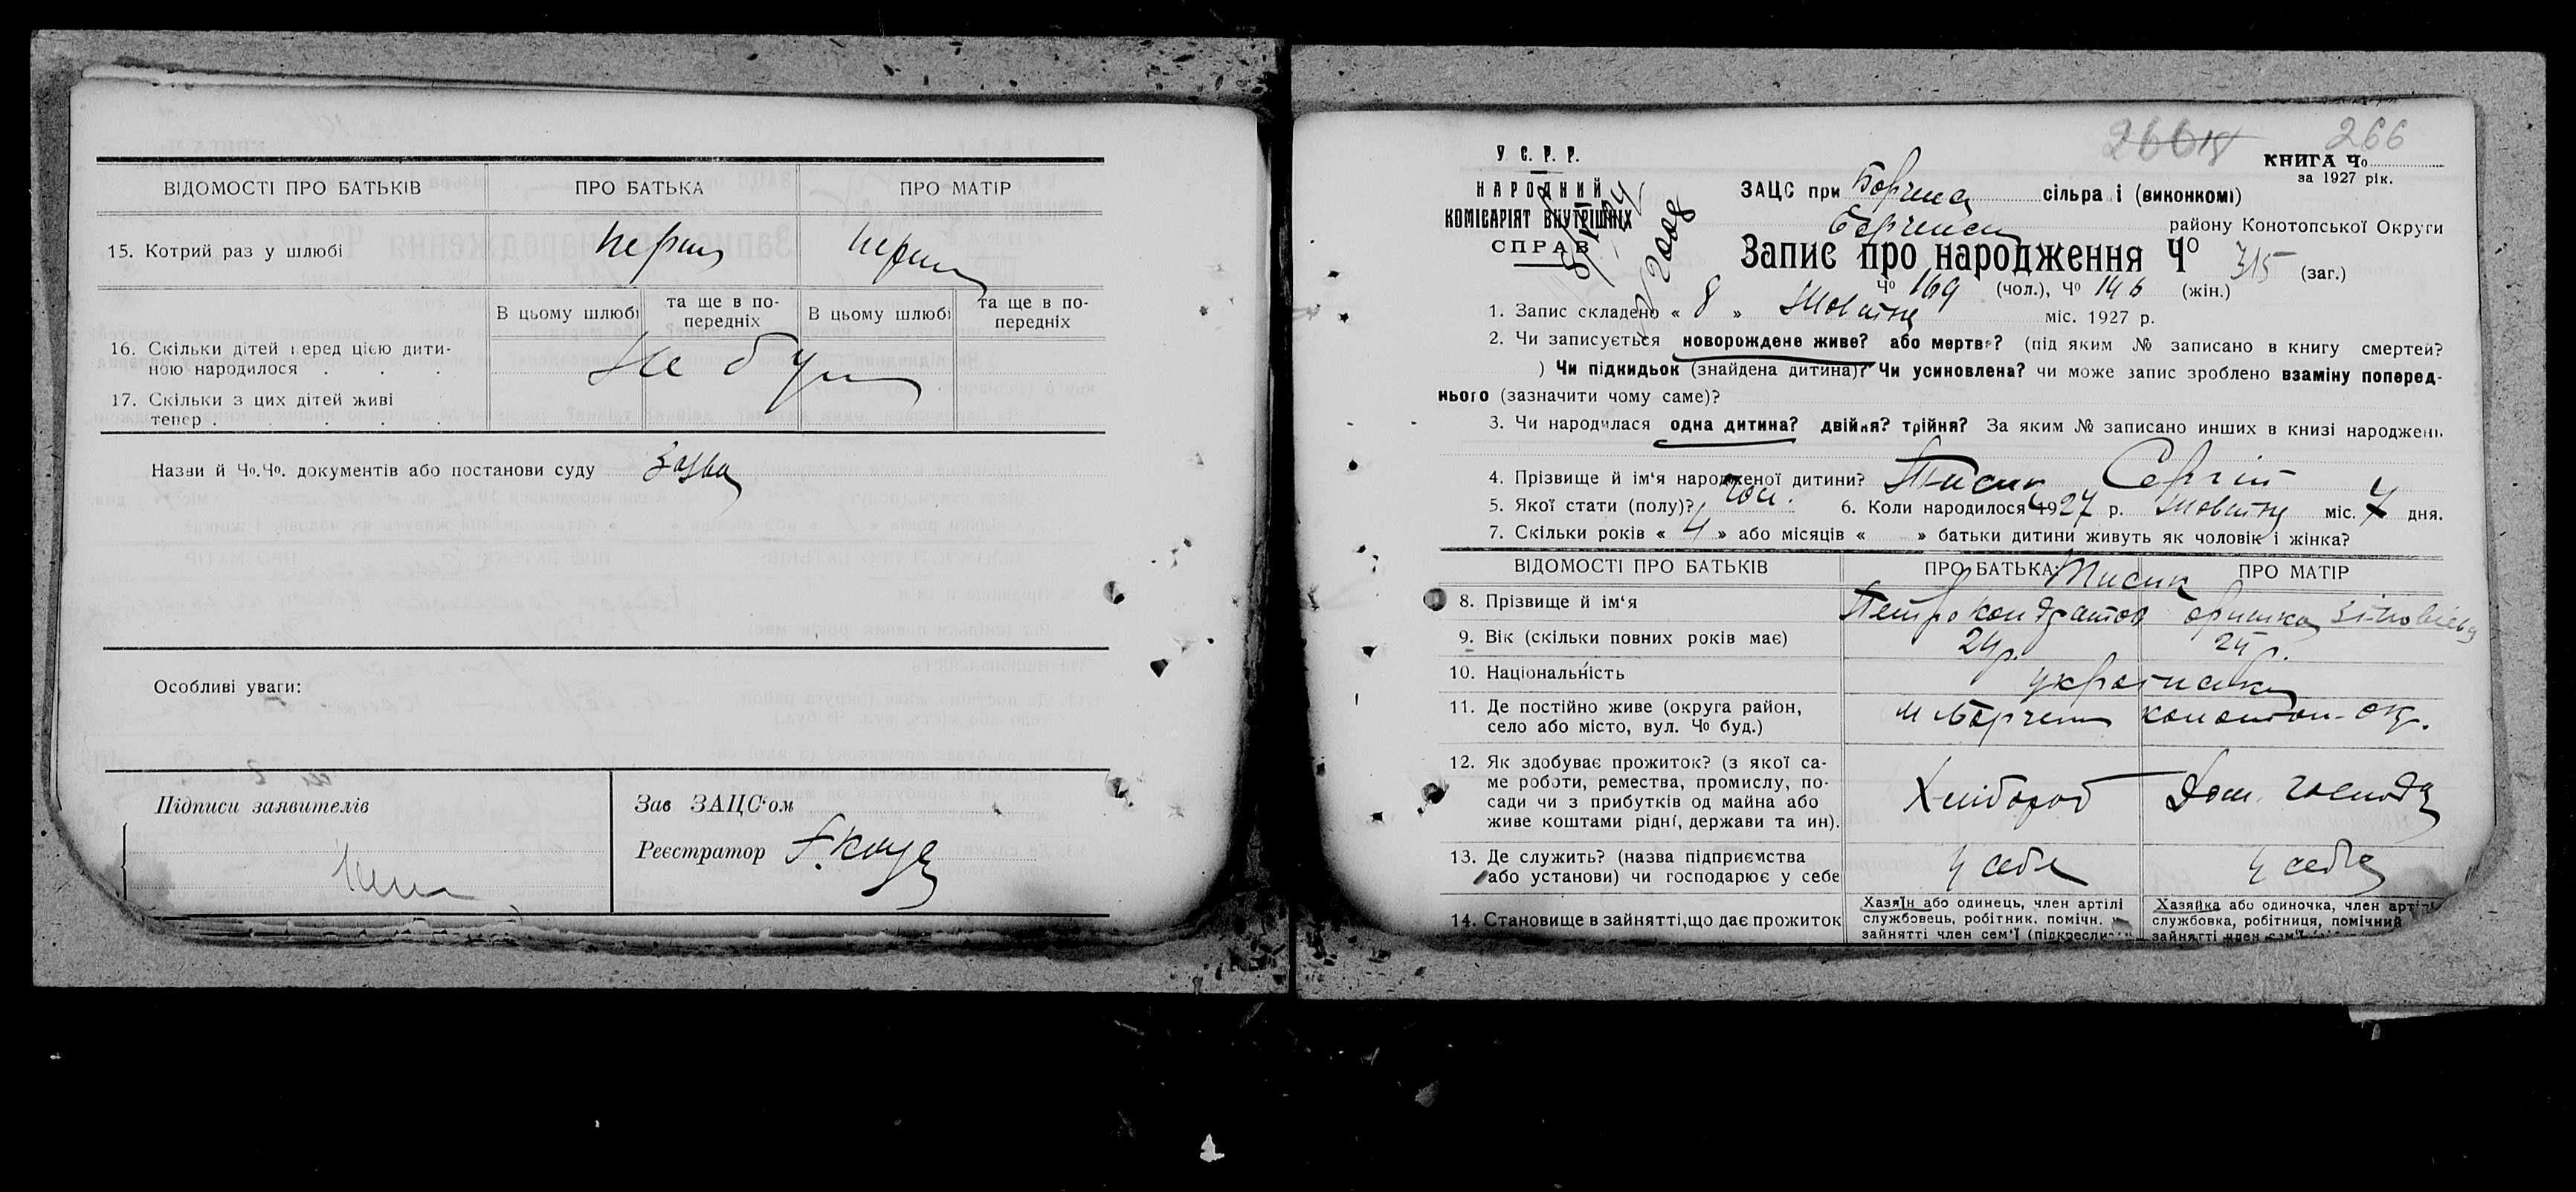 ВІДОМОСТІ ПРО БАТЬКІВ ПРО БАТЬКА ПРО МАТІР
15. Котрий раз у шлюбі перш перш
В цьому шлюбі та ще в по-передніх В цьому шлюбі та ще в по-передніх
16. Скільки дітей перед цією дити-
ною народилося . . . Не бул
17. Скільки з цих дітей живі
тепер . . . . .
Назви й Чо.Чо. документів або постанови суду Заява
Особливі уваги:
Підписи заявителів
Зав ЗАЦС'ом
Реєстратор
266
266
КНИГА Чо
за 1927 рік.
У. С. Р. Р.
НАРОДНИЙ
КОМІСАРІЯТ ВНУТРІШНІХ
СПРАВ
ЗАЦС при Борзна сільраді (виконкомі)
Борзенск району Конотопської Округи
Запис про народження Чо 315 (заг.)
Чо 169 (чол.), Чо 146 (жін.)
1. Запис складено « 8 » Жовтня міс. 1927 р.
2. Чи записується новорождене живе? або мертве? (під яким № записано в книгу смертей?
) Чи підкидьок (знайдена дитина)? Чи усиновлена? чи може запис зроблено взаміну поперед-
нього (зазначити чому саме)?
3. Чи народилася одна дитина? двійня? трійня? За яким № записано инших в книзі народжень
4. Прізвище й ім'я народженої дитини? Тисик Сергій
5. Якої стати (полу)? чол. 6. Коли народилося 1927 р. Жовтня міс. 4 дня.
7. Скільки років « 4 » або місяців « » батьки дитини живуть як чоловік і жінка?
ВІДОМОСТІ ПРО БАТЬКІВ ПРО БАТЬКА: ПРО МАТІР
Тисик
8. Прізвище й ім'я Петро Кондратов Оришка Зіновієва
9. Вік (скільки повних років має) 24 р. 24 р.
10. Національність українськ
11. Де постійно живе (округа район, м Борзна конотоп-окр.
село або місто, вул. Чо буд.)
12. Як здобуває прожиток? (з якої са-
ме роботи, ремества, промислу, по-
сади чи з прибутків од майна або Хлібороб Дом. господ
живе коштами рідні, держави та ин).
13. Де служить? (назва підприємства у себе у себе
або установи) чи господарює у себе
14. Становище в зайнятті, що дає прожиток
Хазяїн або одинець, член артілі
службовець, робітник, помічн. в
зайнятті член сем'ї (підкреслити
Хазяйка або одиночка, член артілі
службовка, робітниця, помічний
зайнятті член сем'ї